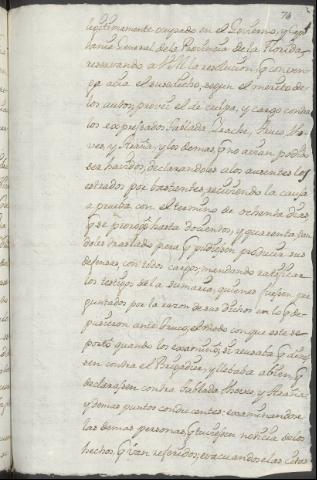 74
legitimamente ocupado en el Govierno, y Capi
tania General de la Provincia de la Florida,
reservando a VM la resolucion q conven
ga acia el susodicho, segun el merito de
los autos; provei el de culpa, y cargo contra
los expresados Sablada,
y los demas q no avian podido
ser havidos, declarandolas a los ausentes los
estrados por bastantes, reciviendo la causa
a prueba con el termino de ochenta dias
q se prorogò hasta docientos, y quarenta,
doles traslado para q pudiesen producir sus
defensas, con todos cargos; mandando ratificar
los testigos de la sumaria, quienes fuesen pre
guntados por la razon de sus dichos en lo q de
pusieron ante Bruco, el modo con que este se
portò quando los examinò, si reusaba q dixe
sen contra el Brigadier, y llebaba a bien q
declarasen contra Sablada y
y demas puntos conducentes: examinandose
las demas personas, q tuviesen noticia de los
hechos, q ivan referidos; evacuandose las citas